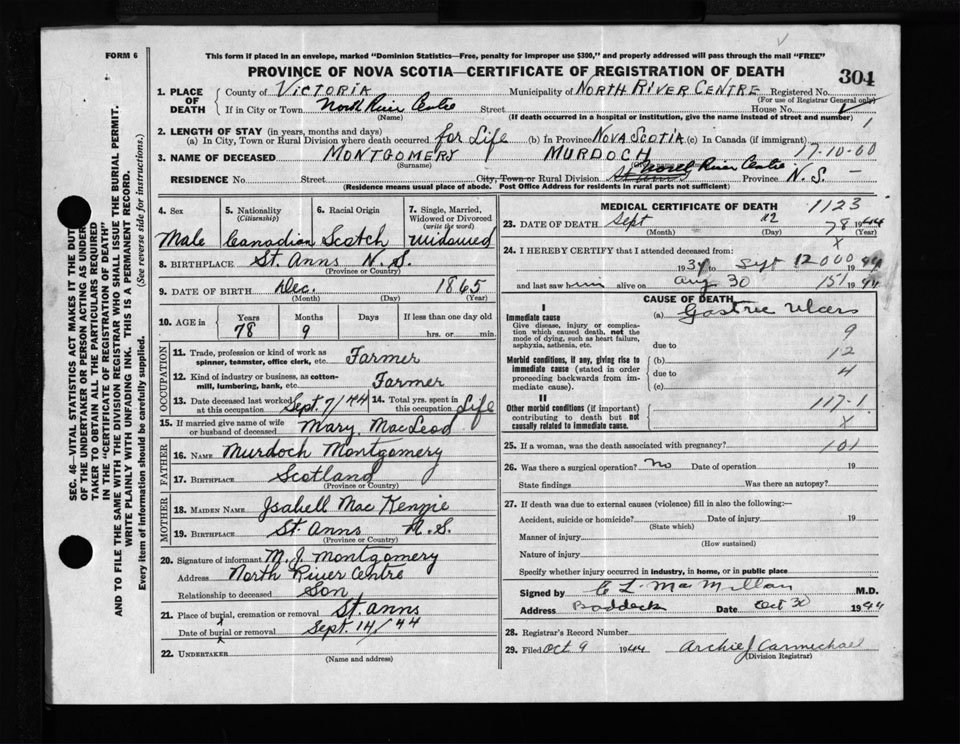 FORM 6
This form if placed in an envelope, marked "Dominion Statistics—Free, penalty for improper use $300," and properly addressed will pass through the mail "FREE"
PROVINCE OF NOVA SCOTIA—CERTIFICATE OF REGISTRATION OF DEATH
304
1. PLACE OF DEATH
County of Victoria Municipality of North River Centre Registered No.
(For use of Registrar General only)
If in City or Town North River Centre Street House No.
(Name) (If death occurred in a hospital or institution, give the name instead of street and number)
1
2. LENGTH OF STAY (in years, months and days)
(a) In City, Town or Rural Division where death occurred for Life (b) In Province Nova Scotia (c) In Canada (if immigrant)
3. NAME OF DECEASED Montgomery Murdoch 17-10-00
(Surname)
RESIDENCE No. Street City, Town or Rural Division North River Centre Province N.S. —
(Residence means usual place of abode. Post Office Address for residents in rural parts not sufficient)
4. Sex
Male
5. Nationality
(Citizenship)
Canadian
6. Racial Origin
Scotch
7. Single, Married, Widowed or Divorced
(write the word)
widowed
8. BIRTHPLACE St. Anns N.S.
(Province or Country)
9. DATE OF BIRTH Dec. 1865
(Month) (Day) (Year)
10. AGE in Years Months Days If less than one day old
78 9 hrs. or min.
OCCUPATION
11. Trade, profession or kind of work as spinner, teamster, office clerk, etc. Farmer
12. Kind of industry or business, as cotton-mill, lumbering, bank, etc. Farmer
13. Date deceased last worked at this occupation Sept 7/44 14. Total yrs. spent in this occupation Life
15. If married give name of wife or husband of deceased Mary MacLeod
FATHER
16. NAME Murdoch Montgomery
17. BIRTHPLACE Scotland
(Province or Country)
MOTHER
18. MAIDEN NAME Isabell MacKenzie
19. BIRTHPLACE St. Anns N.S.
(Province or Country)
20. Signature of informant M. J. Montgomery
Address North River Centre
Relationship to deceased Son
21. Place of burial, cremation or removal St. Anns
Date of burial or removal Sept. 14/44
22. UNDERTAKER
(Name and address)
MEDICAL CERTIFICATE OF DEATH 1123
23. DATE OF DEATH Sept 12 78 1944
(Month) (Day) (Year)
24. I HEREBY CERTIFY that I attended deceased from: X
Sept 12 000 1944
and last saw him alive on Aug 30 151 1944
CAUSE OF DEATH
I
Immediate cause
Give disease, injury or complication which caused death, not the mode of dying, such as heart failure, asphyxia, asthenia, etc.
(a) Gastric Ulcers
9
due to
Morbid conditions, if any, giving rise to immediate cause (stated in order proceeding backwards from immediate cause).
(b) 12
due to 4
(c)
II
Other morbid conditions (if important) contributing to death but not causally related to immediate cause.
117-1
X
25. If a woman, was the death associated with pregnancy? 101
26. Was there a surgical operation? No Date of operation 19
State findings Was there an autopsy?
27. If death was due to external causes (violence) fill in also the following:—
Accident, suicide or homicide? Date of injury 19
(State which)
Manner of injury
(How sustained)
Nature of injury
Specify whether injury occurred in industry, in home, or in public place
Signed by C L MacMillan M.D.
Address Baddeck Date Oct 30 1944
28. Registrar's Record Number
29. Filed Oct 9 1944 Archie J Carmichael
(Division Registrar)
SEC. 46—VITAL STATISTICS ACT MAKES IT THE DUTY
OF THE UNDERTAKER OR PERSON ACTING AS UNDER-
TAKER TO OBTAIN ALL THE PARTICULARS REQUIRED
IN THE "CERTIFICATE OF REGISTRATION OF DEATH"
AND TO FILE THE SAME WITH THE DIVISION REGISTRAR WHO SHALL ISSUE THE BURIAL PERMIT.
WRITE PLAINLY WITH UNFADING INK. THIS IS A PERMANENT RECORD.
Every item of information should be carefully supplied. (See reverse side for instructions.)